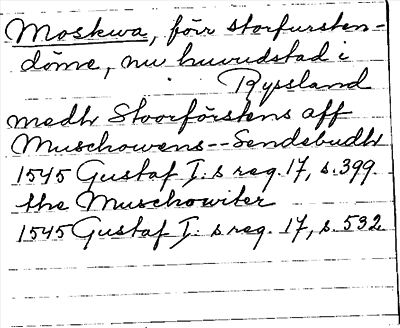 Moskwa, förr storfursten-
döme, nu huvudstad i
Ryssland
medh Stoorförstens aff
Muschowens--Sendebudh
1545 Gustaf I:s reg. 17, s. 399.
the Muschowiter
1545 Gustaf I:s reg. 17, s. 532